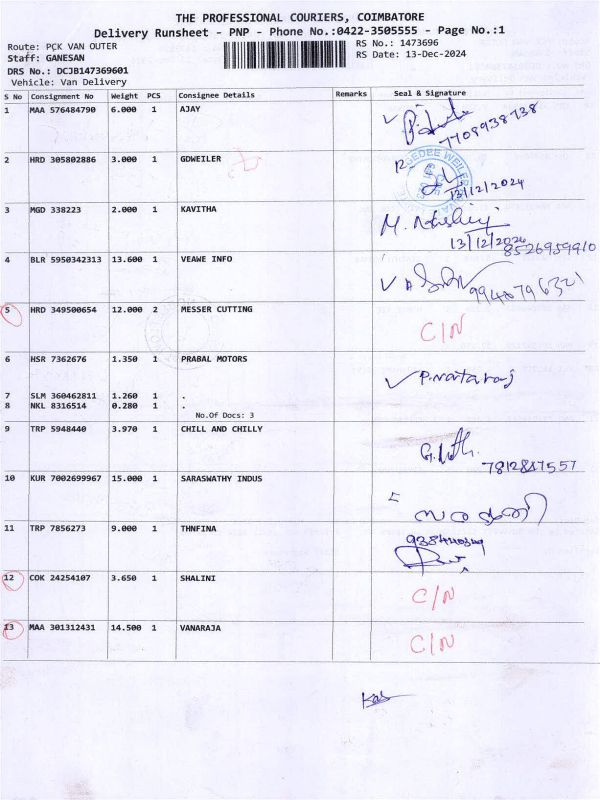 THE PROFESSIONAL COURIERS, COIMBATORE
Delivery Runsheet - PNP - Phone No.:0422-3505555 - Page No.:1
Route: PCK VAN OUTER RS No.: 1473696
Staff: GANESAN RS Date: 13-Dec-2024
DRS No.: DCJB147369601
Vehicle: Van Delivery
S No Consignment No Weight PCS Consignee Details Remarks Seal & Signature
1 MAA 576484790 6.000 1 AJAY
7708938738
2 HRD 305802886 3.000 1 GDWEILER
13/12/2024
3 MGD 338223 2.000 1 KAVITHA
13/12/2024
8526959910
4 BLR 5950342313 13.600 1 VEAWE INFO
9940796321
5 HRD 349500654 12.000 2 MESSER CUTTING
C/N
6 HSR 7362676 1.350 1 PRABAL MOTORS
P.Nataraj
7 SLM 360462811 1.260 1 .
8 NKL 8316514 0.280 1 .
No.Of Docs: 3
9 TRP 5948440 3.970 1 CHILL AND CHILLY
7812847557
10 KUR 7002699967 15.000 1 SARASWATHY INDUS
11 TRP 7856273 9.000 1 THNFINA
12 COK 24254107 3.650 1 SHALINI
C/N
13 MAA 301312431 14.500 1 VANARAJA
C/N